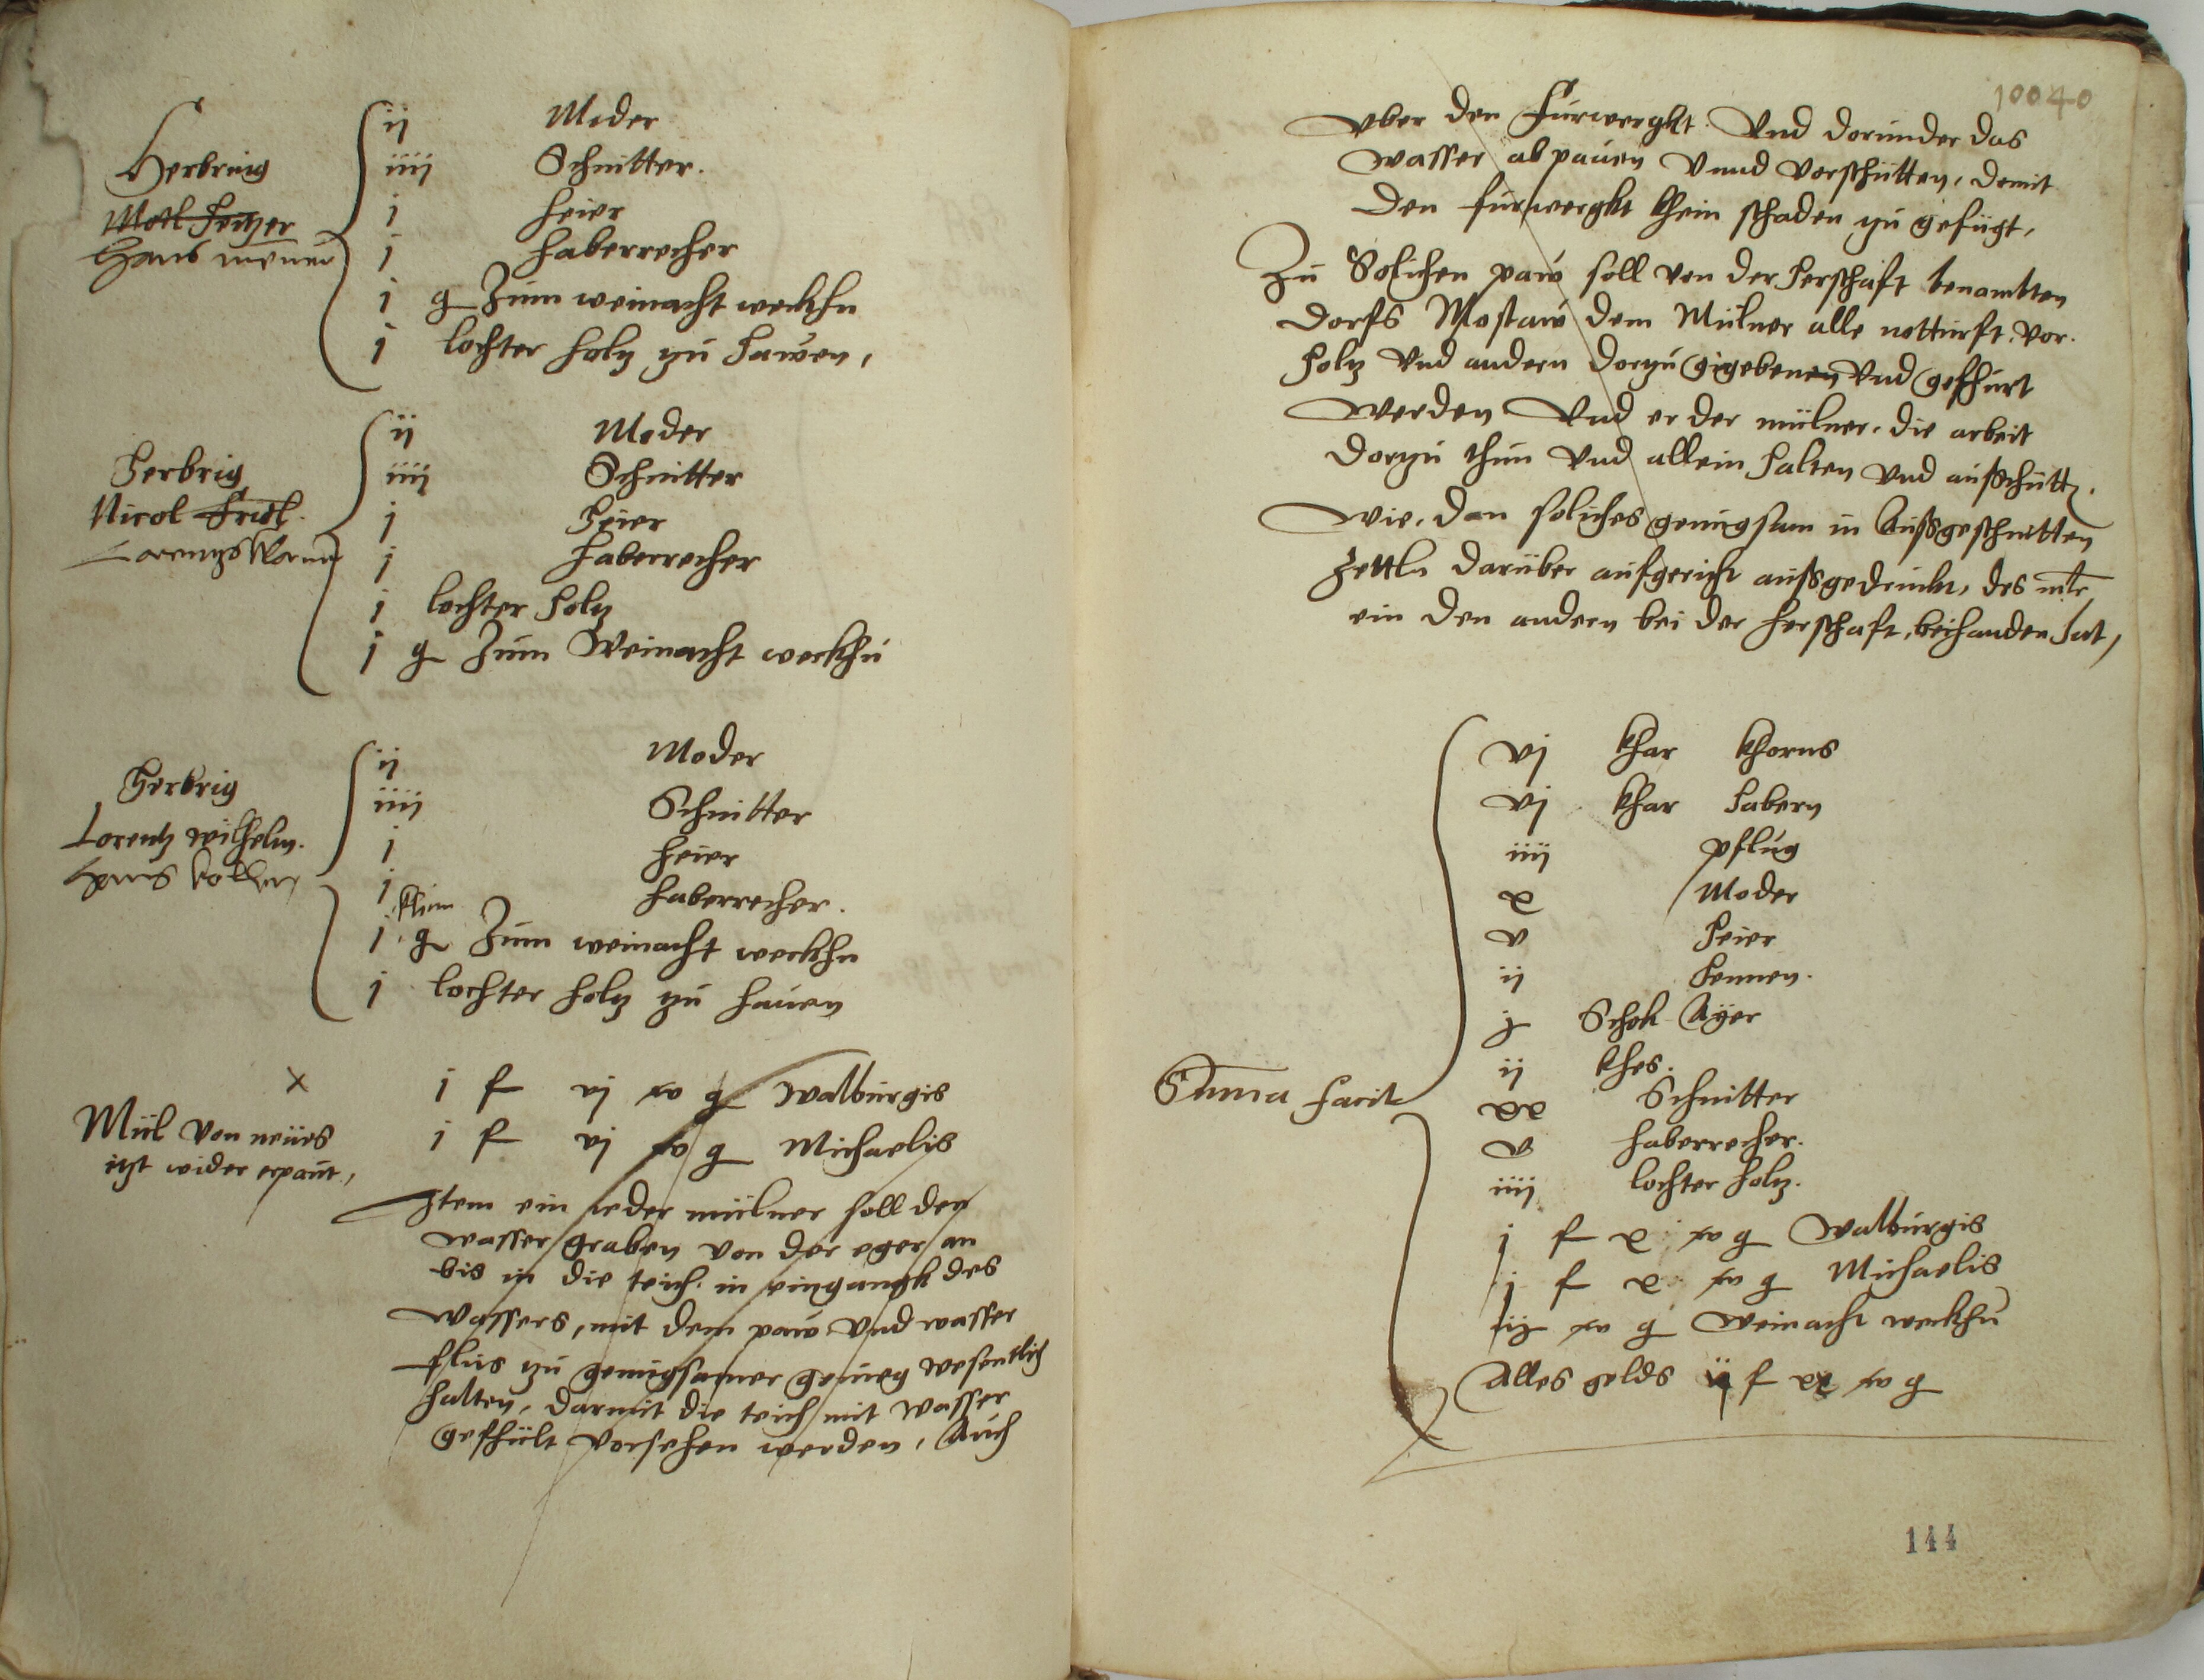 Herbrig
Motl Heitzer
Hans
ij Moder
iiij Schnitter.
j Heier
j Haberrecher
j g Zum weinacht weckhn
j lochter holtz zu Hawen,
Herbrig
Nicol Fridl.
Lorentz
ij Moder
iiij Schnitter
j Heier
j Haberrecher
j lochter holtz
j g Zum Weinacht weckhn
Herbrig
Lorentz wilhelm.
Hans
ij Moder
iiij Schnitter
j Heier
j Haberrecher.
j klein g Zum weinacht weckhn
j lochter holtz zu hauen
x
Mül von neües
itzt wider erpaut,
j f vj xv g Walburgis
j f vj xv g Michaelis
Item ein ieder mülner soll den
wasser graben von der eger an
bis in die teich. in eingangk des
wassers, mit dem paw vnd wasser
flus zu genugsamer genieg wesentlich
halten, darmit die teich mit wasser
gefhült vorsehen werden, Auch
10040
vber den furwerght Vnd dorunder das
wasser ab pauen Vnnd vorschütten, domit
den furwerght khein schaden zu gefügt,
Zu Solichen paw soll von der herschaft benambten
dorfs Mostaw dem Mülner alle notturft, vor.
holtz vnd andern dorzu gigebenen vnd gefhurt
werden Vnd er der mülner, die arbeit
dorzu thun vnd allein halten vnd außschütt.
wie, dan soliches genugsam in Außgeschnitten
Zettln darüber aufgericht außgedruckt, des
ein den andern bei der herschaft, beihanden hat,
Suma facit
vj khar khorns
vj khar habern
iiij pflug
x Moder
v Heier
ij hennen.
j Schok Ayer
ij khes.
xx Schnitter
v haberrecher.
iiij lochter holtz.
j f x xv g Walburgis
j f x xv g Michaelis
iij xv g Weinacht weckhn
Alles gelds ij f xv g
144